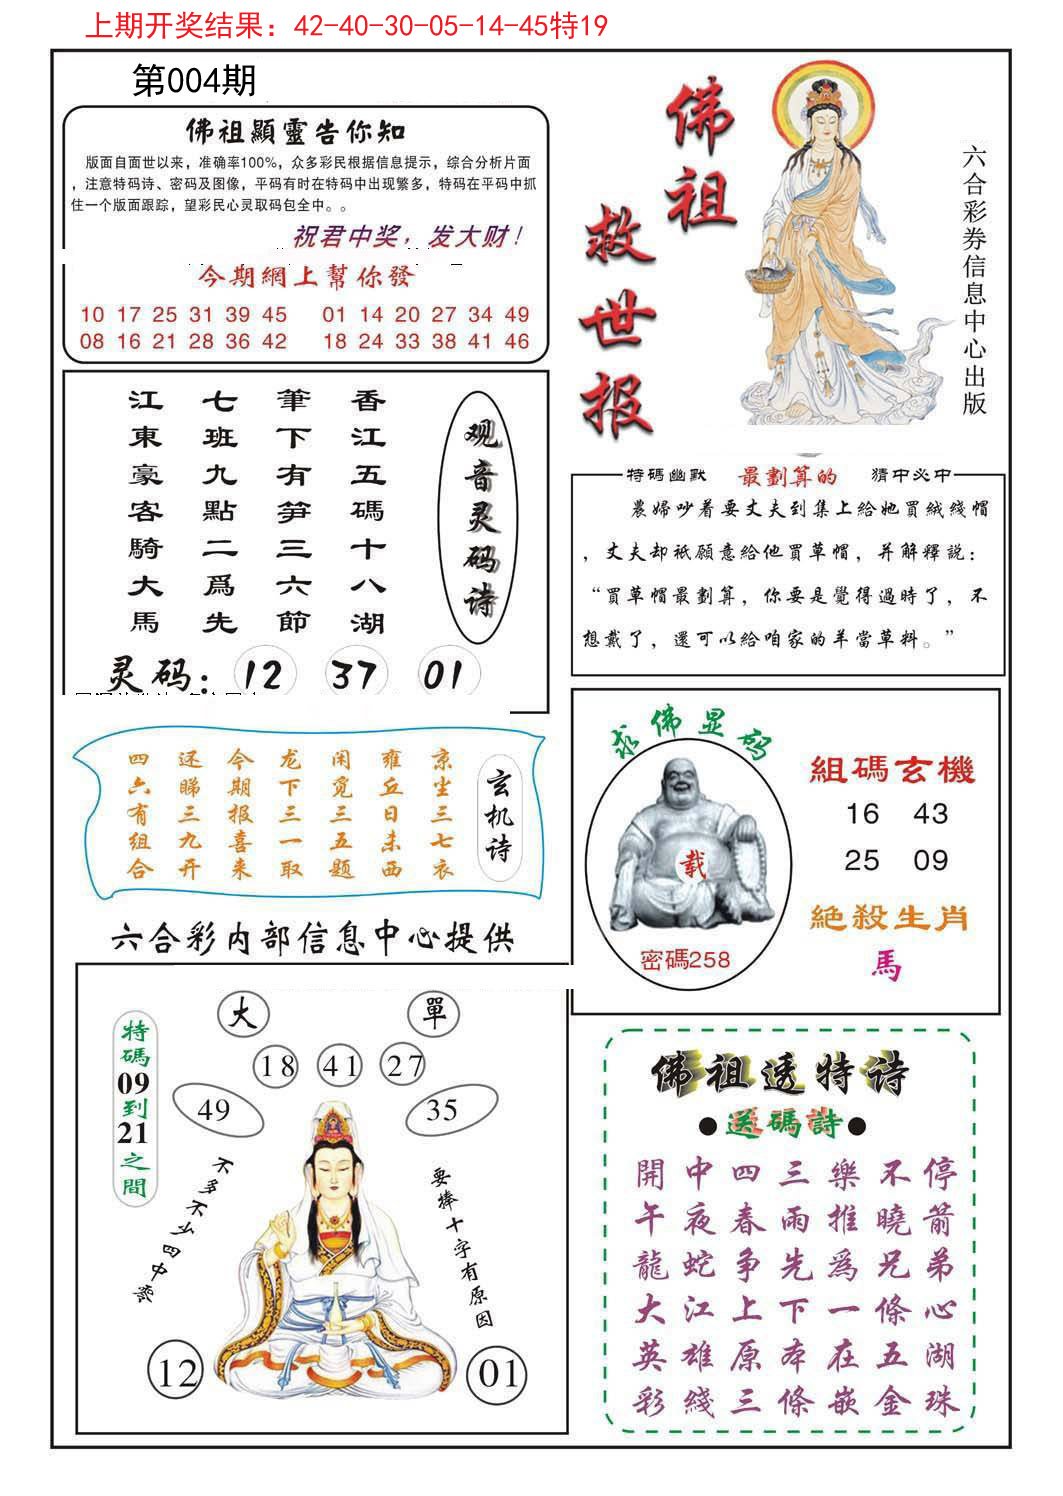 上期开奖结果：42-40-30-05-14-45特19
第004期
佛祖顯靈告你知
版面自面世以来，准确率100%，众多彩民根据信息提示，综合分析片面
，注意特码诗、密码及图像，平码有时在特码中出现繁多，特码在平码中抓
住一个版面跟踪，望彩民心灵取码包全中。。
祝君中奖，发大财！
今期網上幫你發
10 17 25 31 39 45 01 14 20 27 34 49
08 16 21 28 36 42 18 24 33 38 41 46
佛祖
救世报
六合彩券信息中心出版
观音灵码诗
香江五碼十八湖
筆下有笋三六節
七班九點二爲先
江東豪客騎大馬
灵码：12 37 01
特碼幽默 最劃算的 猜中必中
農婦吵着要丈夫到集上給她買絨綫帽
，丈夫却祇願意給他買草帽，并解釋説：
“買草帽最劃算，你要是覺得過時了，不
想戴了，還可以給咱家的羊當草料。”
玄机诗
京尘三七衣
雍丘日未西
闲觅三五题
龙下三一取
今期报喜来
还睇三九开
四六有组合
求佛显码
载
密碼258
組碼玄機
16 43
25 09
絕殺生肖
馬
六合彩内部信息中心提供
特碼09到21之間
大 單
18 41 27
49 35
不多不少四中零
要棒十字有原因
12 01
佛祖透特诗
●送碼詩●
開中四三樂不停
午夜春雨推曉箭
龍蛇争先爲兄弟
大江上下一條心
英雄原本在五湖
彩綫三條嵌金珠